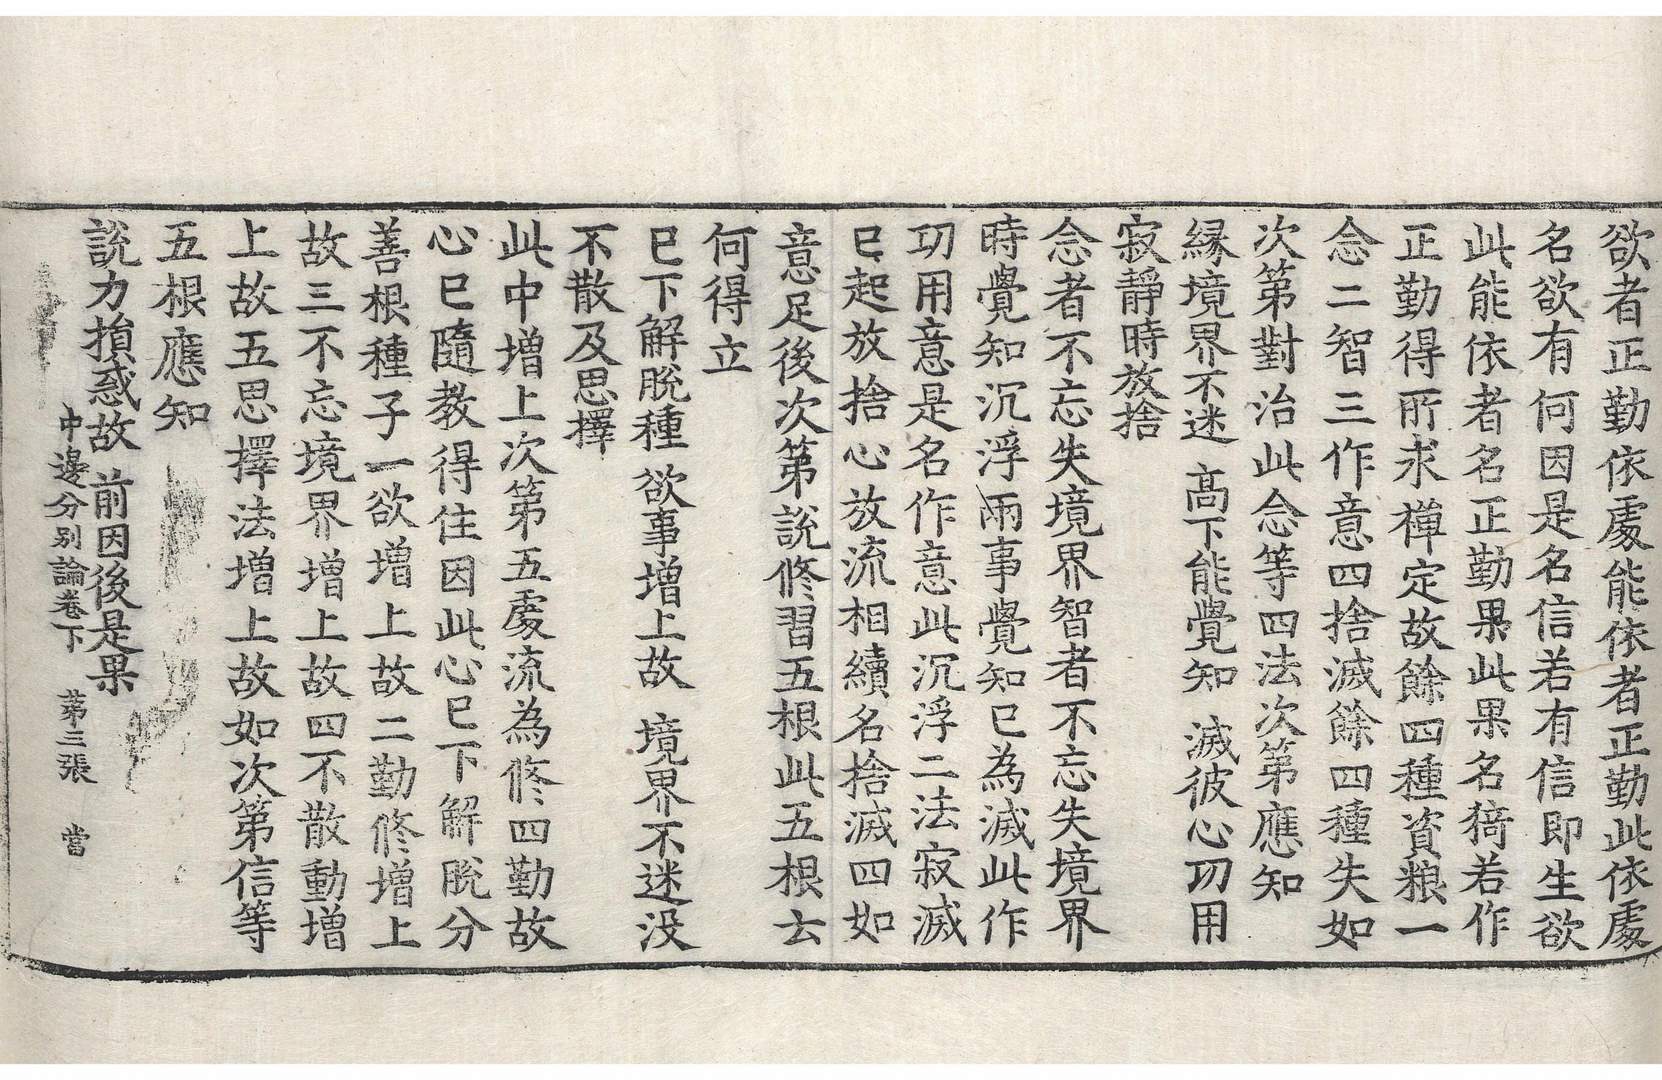 欲者正勤依處能依者正勤此依處
名欲有何因是名信若有信即生欲
此能依者名正勤果此果名猗若作
正勤得所求禪定故餘四種資粮一
念二智三作意四捨滅餘四種失如
次第對治此念等四法次第應知
縁境界不迷　高下能覺知　滅彼心功用
寂靜時放捨
念者不忘失境界智者不忘失境界
時覺知沉浮兩事覺知已為滅此作
功用意是名作意此沉浮二法寂滅
已起放捨心放流相續名捨滅四如
意足後次第說修習五根此五根云
何得立
已下解脫種　欲事增上故　境界不迷没
不散及思擇
此中增上次第五處流為修四勤故
心已隨教得住因此心已下解脫分
善根種子一欲增上故二勤修增上
故三不忘境界增上故四不散動增
上故五思擇法增上故如次第信等
五根應知
說力損惑故　前因後是果
中邊分別論卷下　第三張　當